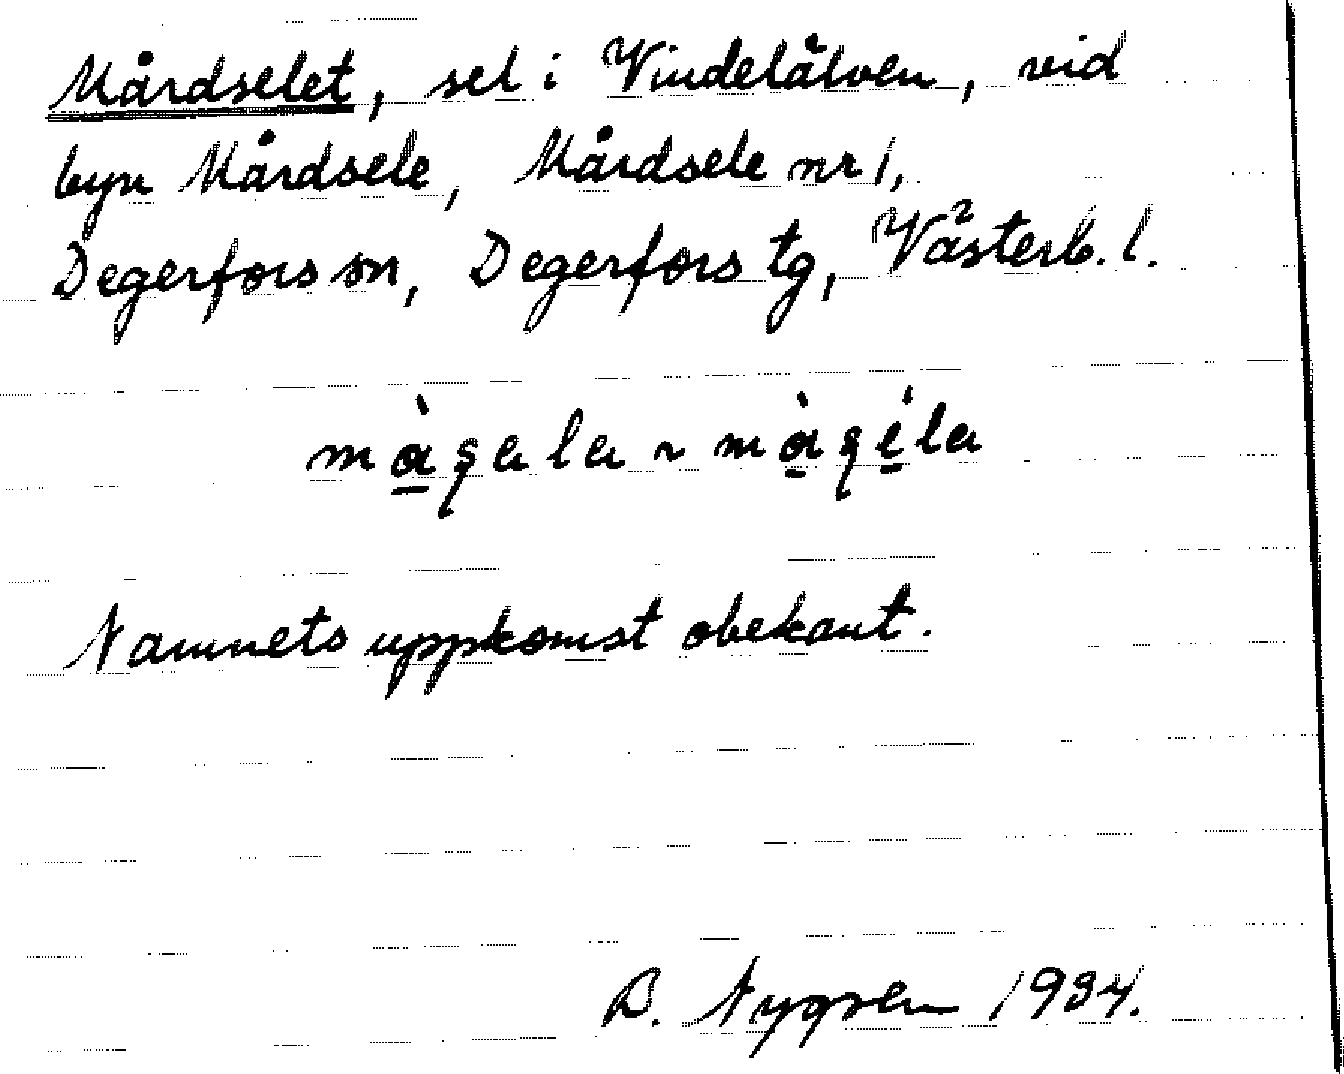 Mårdselet, sel i Vindelälven, vid
byn Mårdsele, Mårdsele nr 1,
Degerfors sn, Degerfors tg, Västerb. l.
Namnets uppkomst obekant.
B. Nygren 1934.